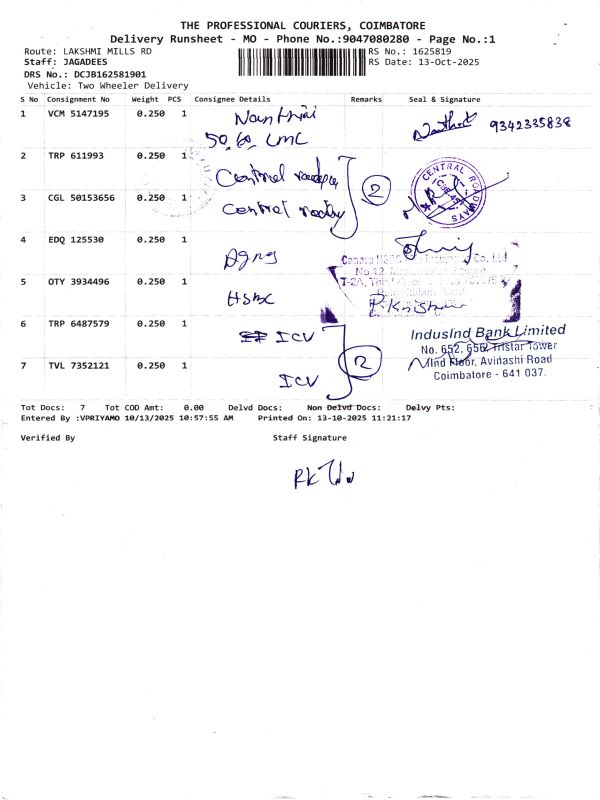 THE PROFESSIONAL COURIERS, COIMBATORE
Delivery Runsheet - MO - Phone No.:9047080280 - Page No.:1
Route: LAKSHMI MILLS RD
RS No.: 1625819
Staff: JAGADEES
RS Date: 13-Oct-2025
DRS No.: DCJB162581901
Vehicle: Two Wheeler Delivery
S No Consignment No Weight PCS Consignee Details Remarks Seal & Signature
1 VCM 5147195 0.250 1
9342335838
2 TRP 611993 0.250 1 Central
2
CENTRAL ROADWAYS
3 CGL 50153656 0.250 1 Central
4 EDQ 125530 0.250 1
5 OTY 3934496 0.250 1 HSBC
6 TRP 6487579 0.250 1 ICV
IndusInd Bank Limited
No. 652, 656, Tristar Tower
IInd Floor, Avinashi Road
Coimbatore - 641 037.
7 TVL 7352121 0.250 1 ICV
2
Tot Docs: 7 Tot COD Amt: 0.00 Delvd Docs: Non Delvd Docs: Delvy Pts:
Entered By :VPRIYAMO 10/13/2025 10:57:55 AM Printed On: 13-10-2025 11:21:17
Verified By Staff Signature